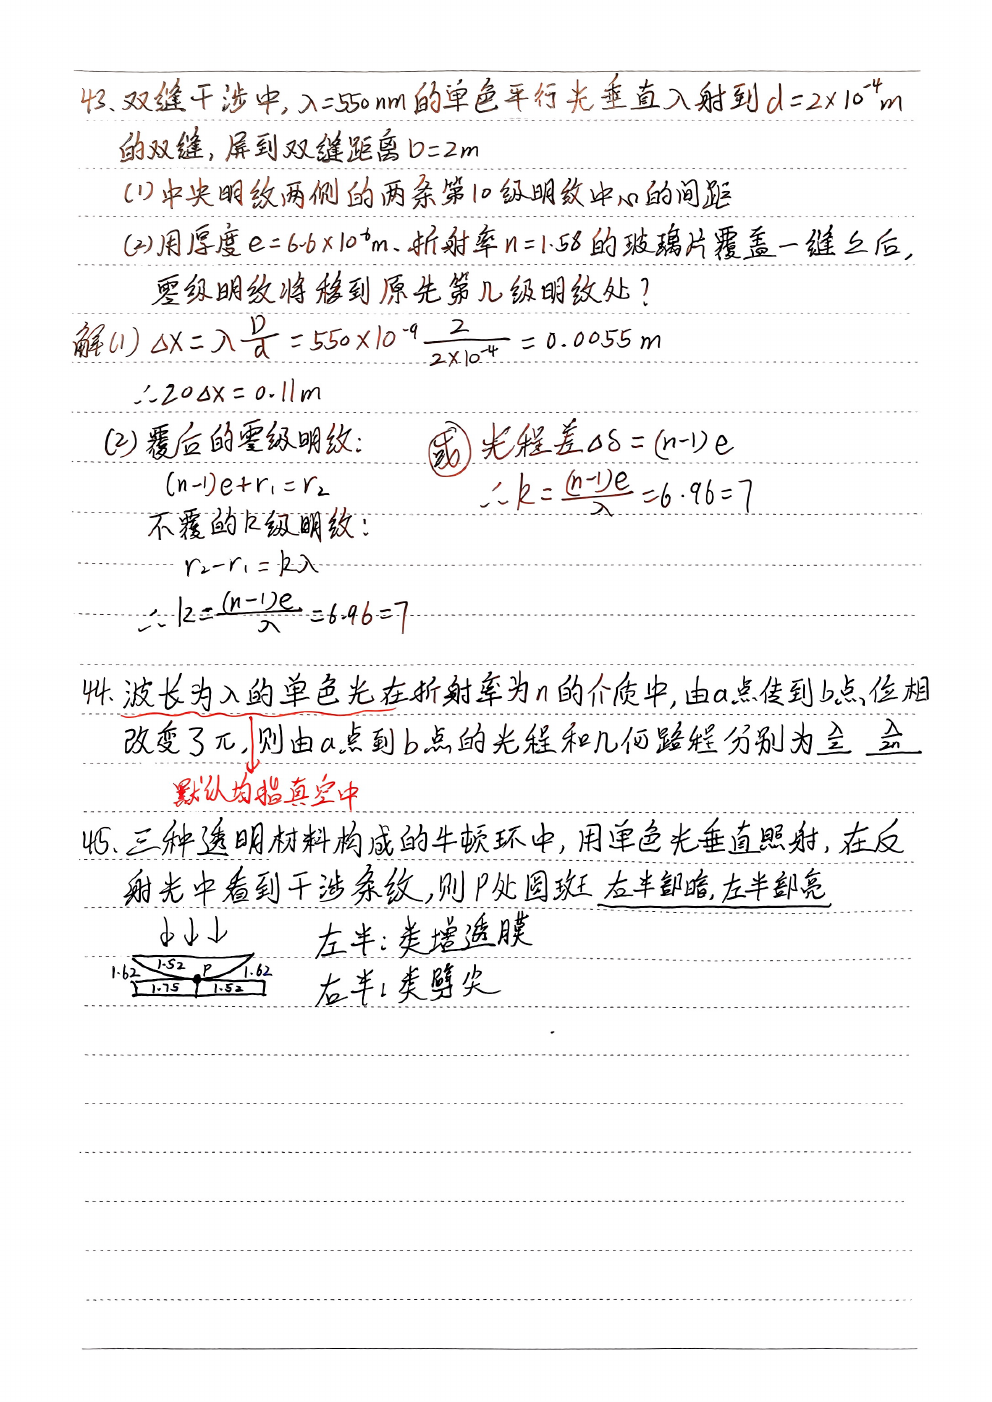 43. 双缝干涉中, λ=550nm的单色平行光垂直入射到d=2×10⁻⁴m
的双缝, 屏到双缝距离D=2m
(1)中央明纹两侧的两条第10级明纹中心的间距
(2)用厚度e=6.6×10⁻⁶m、折射率n=1.58的玻璃片覆盖一缝之后,
零级明纹将移到原先第几级明纹处?
解(1) Δx=λ D/d =550×10⁻⁹ 2/(2×10⁻⁴) =0.0055m
∴20Δx=0.11m
(2)覆后的零级明纹:
(n-1)e+r₁=r₂
不覆的k级明纹:
r₂-r₁=kλ
∴k=(n-1)e/λ=6.96=7
或 光程差Δδ=(n-1)e
∴k=(n-1)e/λ=6.96=7
44. 波长为λ的单色光在折射率为n的介质中,由a点传到b点,位相
改变了π,则由a点到b点的光程和几何路程分别为 λ/2 λ/2n
默认均指真空中
45. 三种透明材料构成的牛顿环中, 用单色光垂直照射, 在反
射光中看到干涉条纹,则P处圆斑 右半部暗,左半部亮
左半: 类增透膜
右半: 类劈尖
1.62 1.52 P 1.62
1.75 1.52